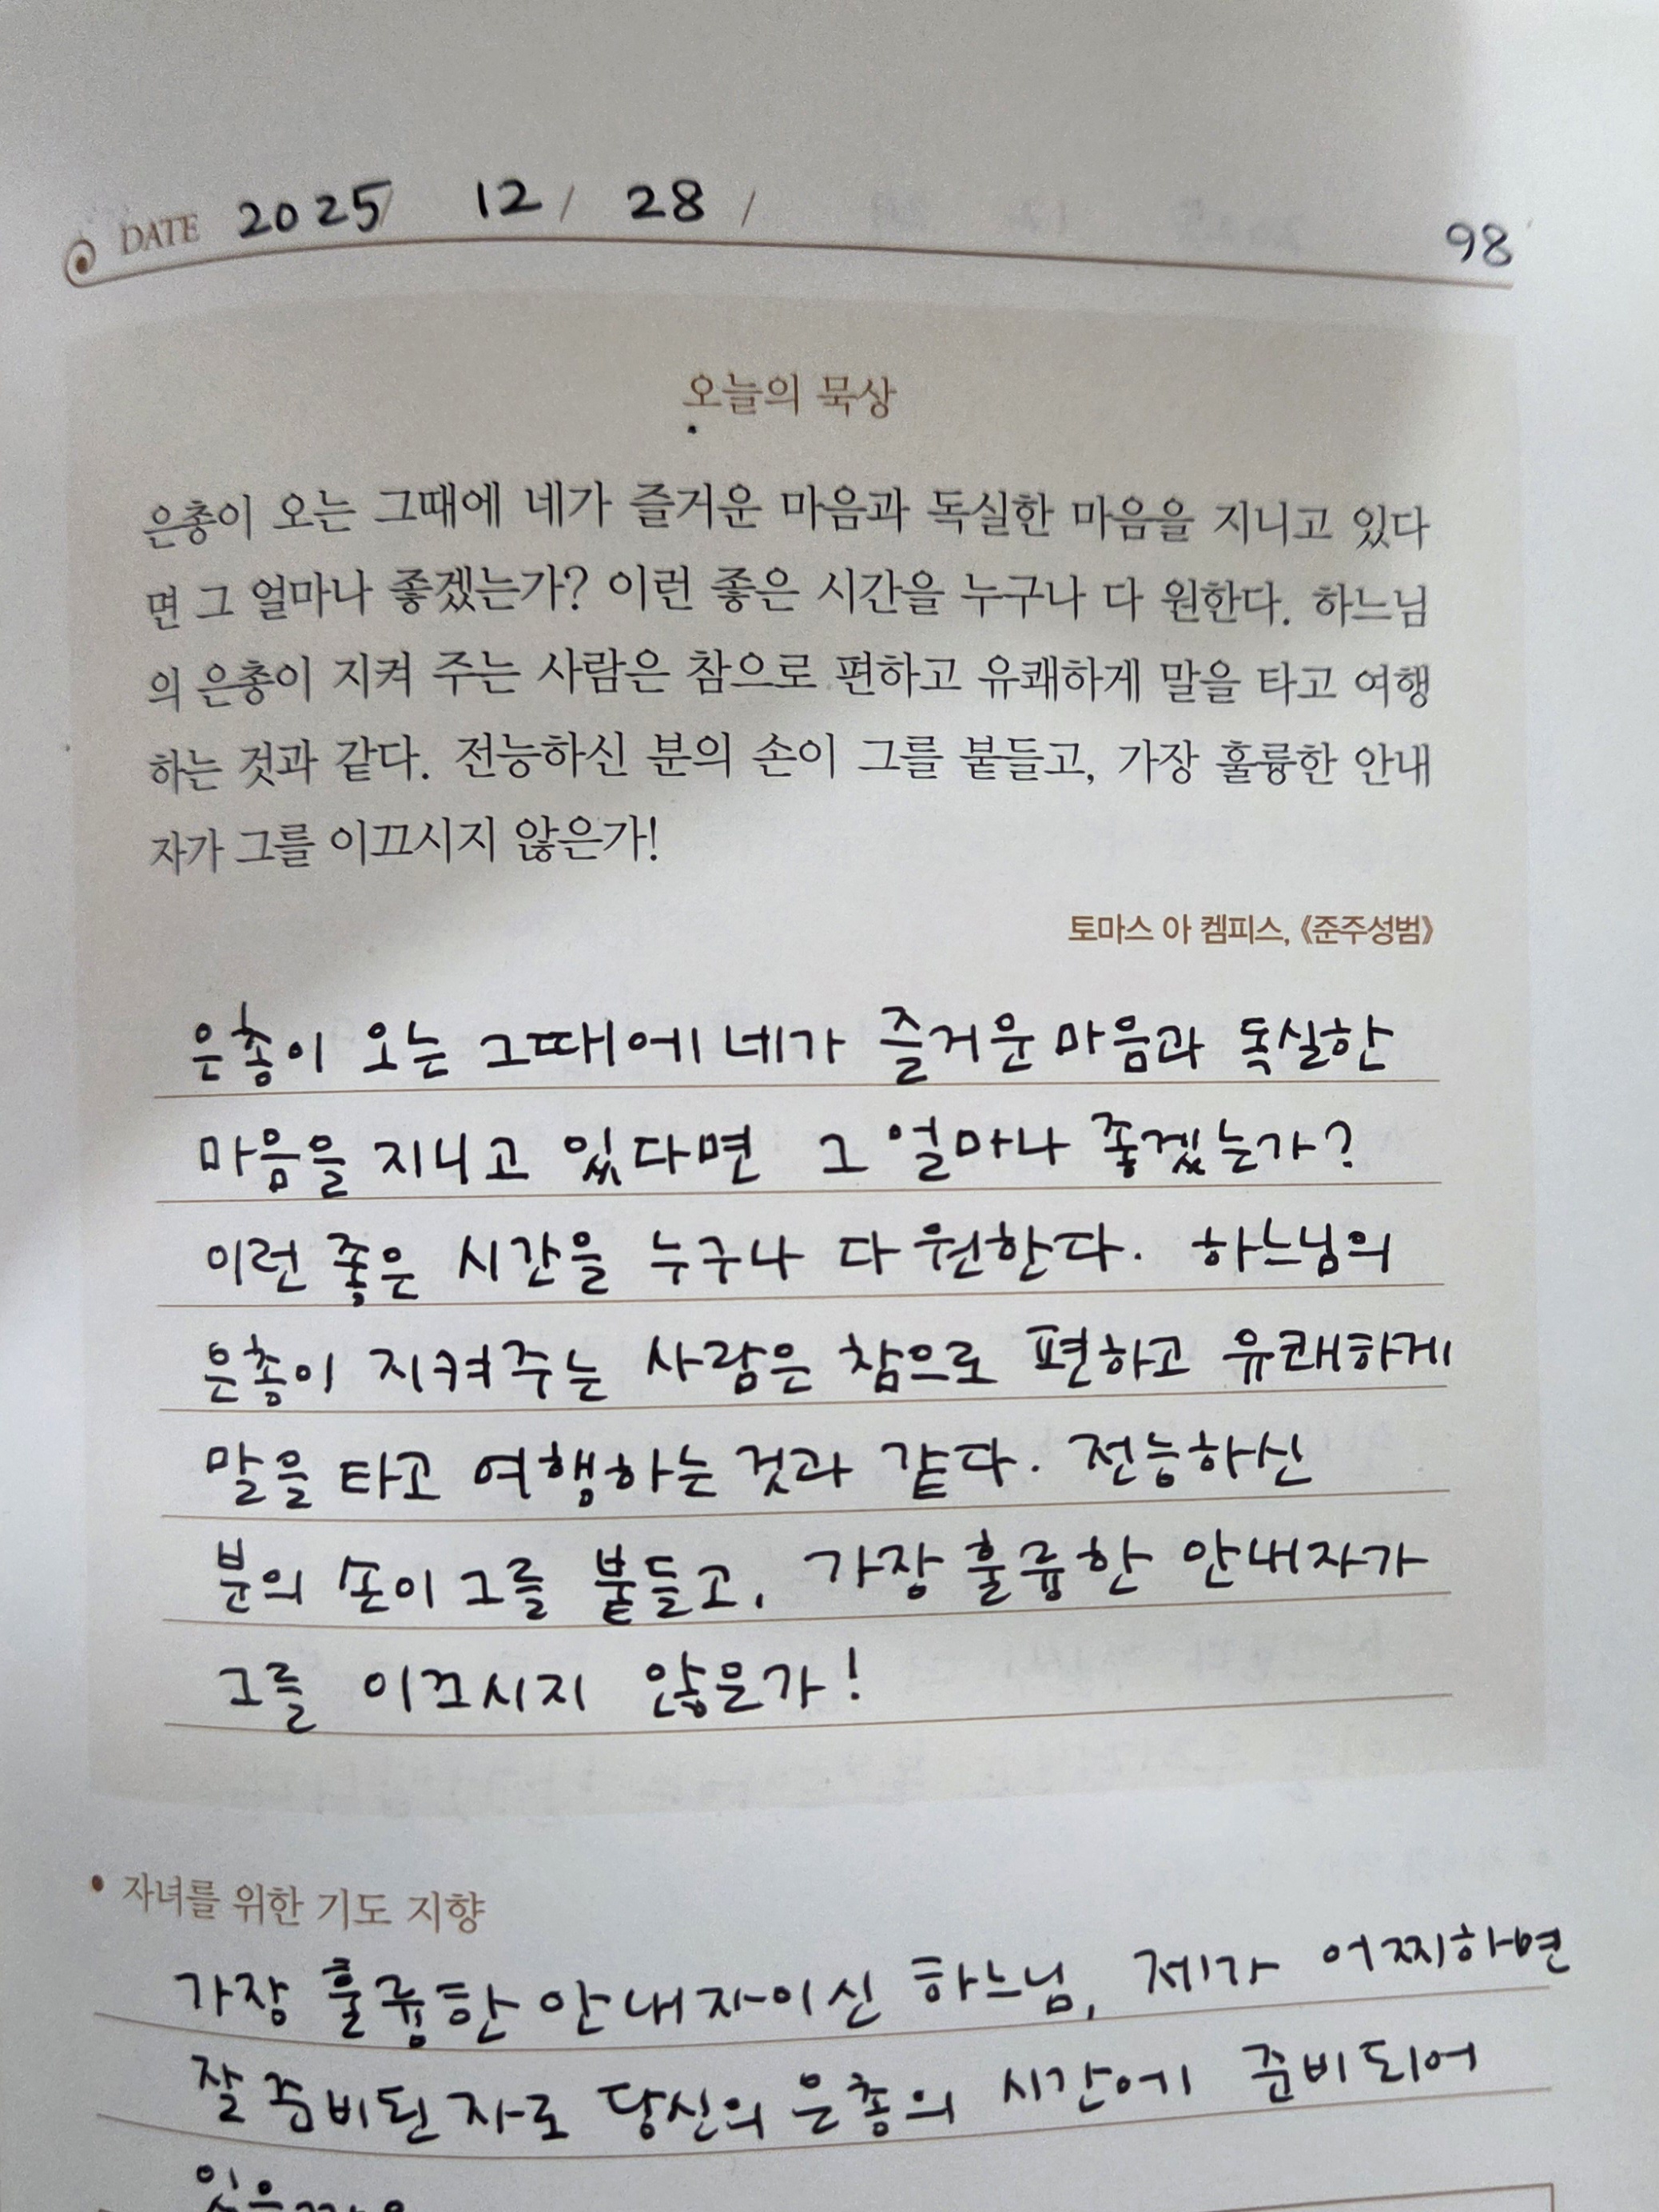 DATE 2025 / 12 / 28 /
98
오늘의 묵상
은총이 오는 그때에 네가 즐거운 마음과 독실한 마음을 지니고 있다
면 그 얼마나 좋겠는가? 이런 좋은 시간을 누구나 다 원한다. 하느님
의 은총이 지켜 주는 사람은 참으로 편하고 유쾌하게 말을 타고 여행
하는 것과 같다. 전능하신 분의 손이 그를 붙들고, 가장 훌륭한 안내
자가 그를 이끄시지 않은가!
토마스 아 켐피스, 《준주성범》
은총이 오는 그때에 네가 즐거운 마음과 독실한
마음을 지니고 있다면 그 얼마나 좋겠는가?
이런 좋은 시간을 누구나 다 원한다. 하느님의
은총이 지켜주는 사람은 참으로 편하고 유쾌하게
말을 타고 여행하는 것과 같다. 전능하신
분의 손이 그를 붙들고, 가장 훌륭한 안내자가
그를 이끄시지 않은가!
• 자녀를 위한 기도 지향
가장 훌륭한 안내자이신 하느님, 제가 어찌하면
잘 준비된 자로 당신의 은총의 시간에 준비되어